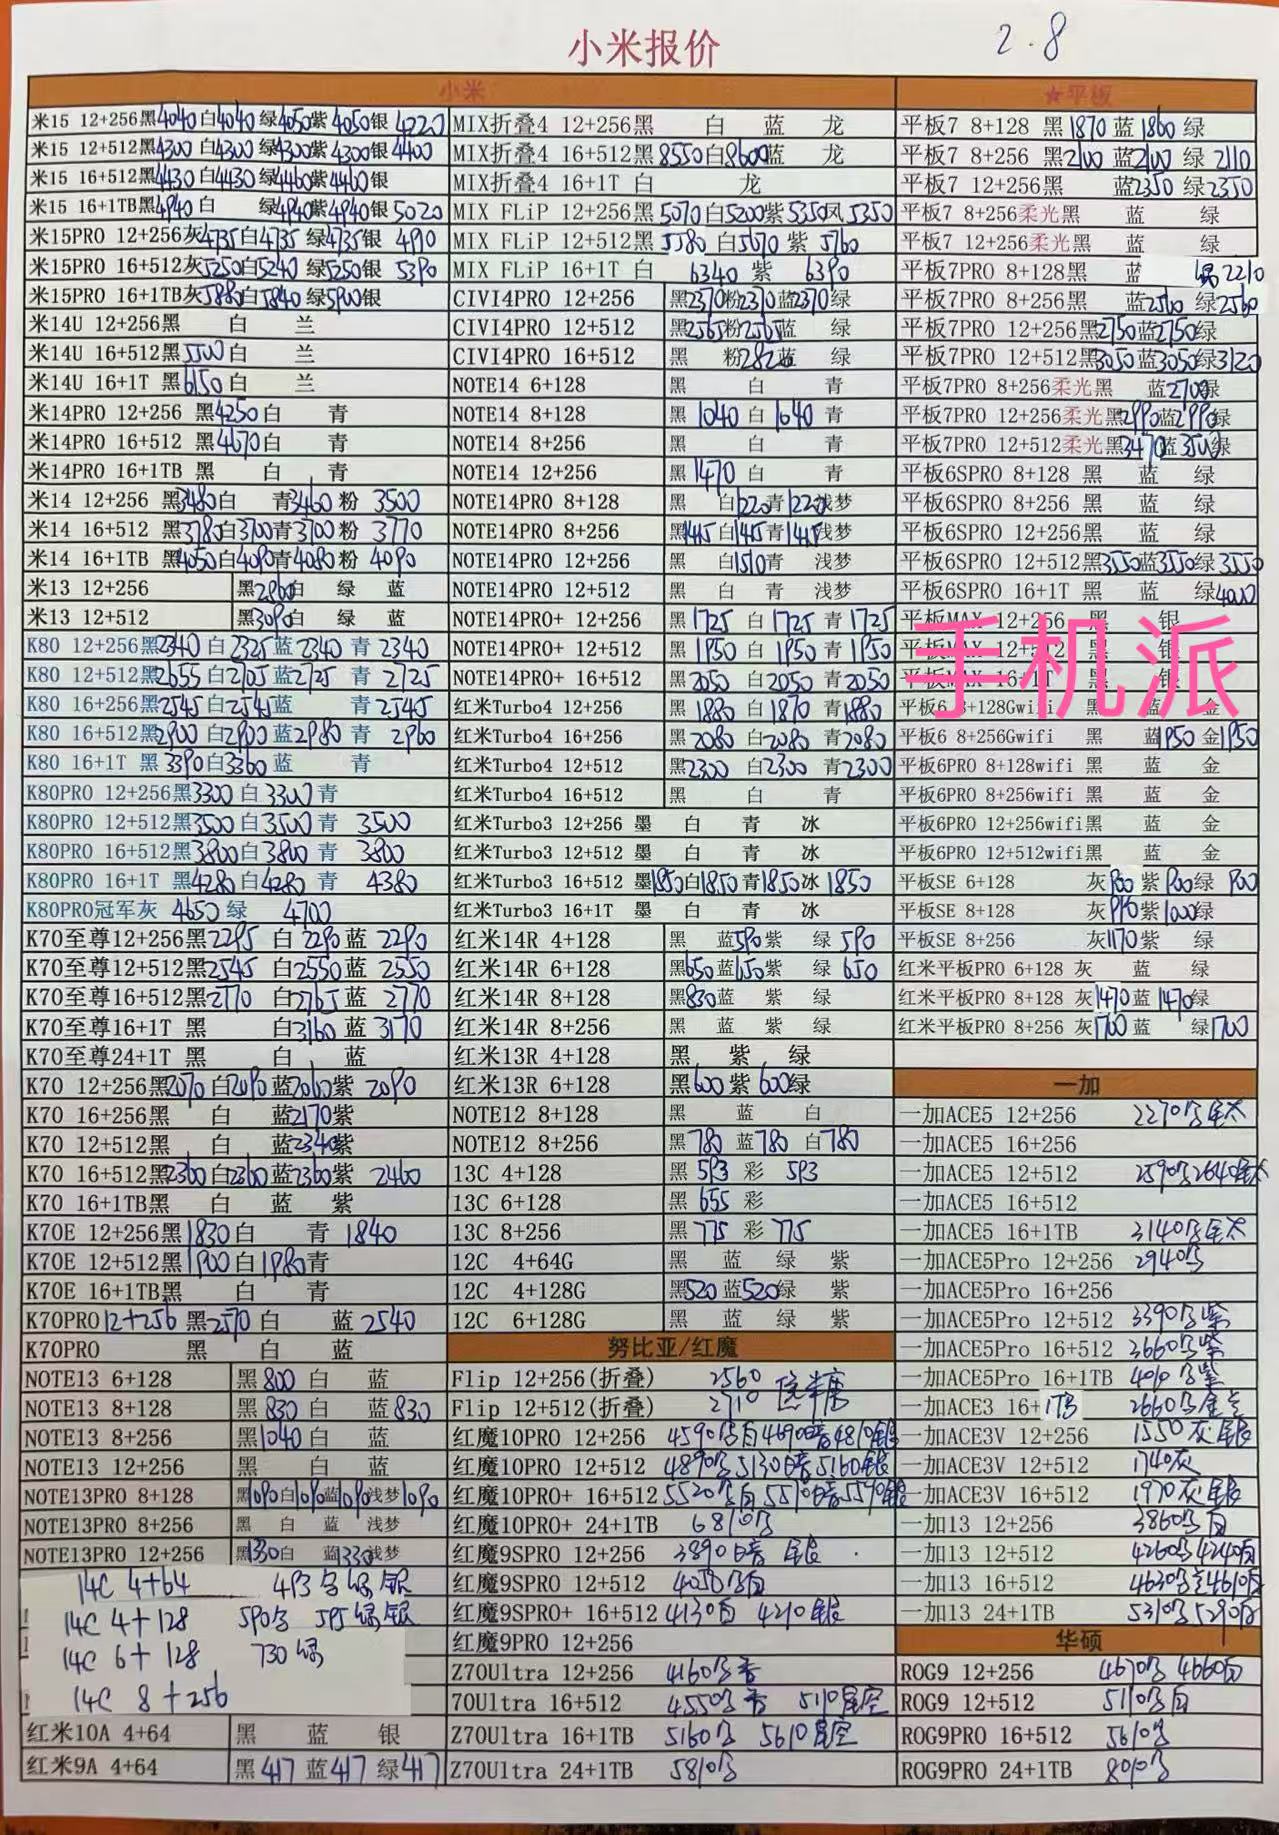 小米报价 2.8
小米
米15 12+256黑4040白4040绿4050紫4050银4220
米15 12+512黑4300白4300绿4300紫4300银4400
米15 16+512黑4430白4430绿4460紫4460银
米15 16+1TB黑4940白 绿4940紫4940银5020
米15PRO 12+256灰4735白4735绿4735银
米15PRO 16+512灰5250白5240绿5250银5390
米15PRO 16+1TB灰5880白5840绿5900银
米14U 12+256黑 白 兰
米14U 16+512黑5500白 兰
米14U 16+1T 黑6150白 兰
米14PRO 12+256 黑4250白 青
米14PRO 16+512 黑4670白 青
米14PRO 16+1TB 黑 白 青
米14 12+256 黑3480白 青3460粉 3500
米14 16+512 黑3780白3700青3700粉 3770
米14 16+1TB 黑4050白4090青4080粉 4090
米13 12+256 黑2960白 绿 蓝
米13 12+512 黑3090白 绿 蓝
K80 12+256黑2340白2325蓝2340青2340
K80 12+512黑2655白2705蓝2725青2725
K80 16+256黑2545白2545蓝 青2545
K80 16+512黑2900白2900蓝2980青2960
K80 16+1T 黑3390白3360蓝 青
K80PRO 12+256黑3300白3300青
K80PRO 12+512黑3500白3500青 3500
K80PRO 16+512黑3800白3800青 3800
K80PRO 16+1T 黑4280白4280青 4380
K80PRO冠军灰 4650绿 4700
K70至尊12+256黑2295白2290蓝2290
K70至尊12+512黑2545白2550蓝2550
K70至尊16+512黑2770白2765蓝2770
K70至尊16+1T 黑 白3160蓝3170
K70至尊24+1T 黑 白 蓝
K70 12+256黑2070白2090蓝2060紫2090
K70 16+256黑 白 蓝2170紫
K70 12+512黑 白 蓝2340紫
K70 16+512黑2360白2360蓝2360紫2460
K70 16+1TB黑 白 蓝 紫
K70E 12+256黑1830白 青1840
K70E 12+512黑1900白1980青
K70E 16+1TB黑 白 青
K70PRO12+256 黑2570白 蓝2540
K70PRO 黑 白 蓝
NOTE13 6+128 黑800白 蓝
NOTE13 8+128 黑830白 蓝830
NOTE13 8+256 黑1040白 蓝
NOTE13 12+256 黑 白 蓝
NOTE13PRO 8+128 黑1090白1090蓝1090浅梦1090
NOTE13PRO 8+256 黑 白 蓝 浅梦
NOTE13PRO 12+256 黑1330白 蓝1330浅梦
14C 4+64 493 绿银
14C 4+128 590 595绿银
14C 6+128 730绿
14C 8+256
红米10A 4+64 黑 蓝 银
红米9A 4+64 黑417蓝417绿417
MIX折叠4 12+256黑 白 蓝 龙
MIX折叠4 16+512黑8550白8600蓝 龙
MIX折叠4 16+1T 白 龙
MIX FLiP 12+256黑5070白5200紫5350凤5350
MIX FLiP 12+512黑5580白5670紫5760
MIX FLiP 16+1T 白 6340紫 6390
CIVI4PRO 12+256 黑2370粉2370蓝2370绿
CIVI4PRO 12+512 黑2565粉2565蓝 绿
CIVI4PRO 16+512 黑 粉282蓝 绿
NOTE14 6+128 黑 白 青
NOTE14 8+128 黑1040白1040青
NOTE14 8+256 黑 白 青
NOTE14 12+256 黑1470白 青
NOTE14PRO 8+128 黑 白1220青1220浅梦
NOTE14PRO 8+256 黑1415白1415青1415浅梦
NOTE14PRO 12+256 黑 白1510青 浅梦
NOTE14PRO 12+512 黑 白 青 浅梦
NOTE14PRO+ 12+256 黑1725白1725青1725
NOTE14PRO+ 12+512 黑1950白1950青1950
NOTE14PRO+ 16+512 黑2050白2050青2050
红米Turbo4 12+256 黑1880白1870青1880
红米Turbo4 16+256 黑2080白2080青2080
红米Turbo4 12+512 黑2300白2300青2300
红米Turbo4 16+512 黑 白 青
红米Turbo3 12+256 墨 白 青 冰
红米Turbo3 12+512 墨 白 青 冰
红米Turbo3 16+512 墨1850白1850青1850冰1850
红米Turbo3 16+1T 墨 白 青 冰
红米14R 4+128 黑 蓝590紫 绿590
红米14R 6+128 黑650蓝650紫 绿650
红米14R 8+128 黑830蓝 紫 绿
红米14R 8+256 黑 蓝 紫 绿
红米13R 4+128 黑 紫 绿
红米13R 6+128 黑600紫600绿
NOTE12 8+128 黑 蓝 白
NOTE12 8+256 黑780蓝780白780
13C 4+128 黑593彩593
13C 6+128 黑655彩
13C 8+256 黑775彩775
12C 4+64G 黑 蓝 绿 紫
12C 4+128G 黑520蓝520绿 紫
12C 6+128G 黑 蓝 绿 紫
努比亚/红魔
Flip 12+256(折叠) 2560
Flip 12+512(折叠) 2710 焦糖
红魔10PRO 12+256 4590 白4690暗4810银
红魔10PRO 12+512 4890 5130暗5160银
红魔10PRO+ 16+512 5520 白5510暗5590银
红魔10PRO+ 24+1TB 6810
红魔9SPRO 12+256 3890暗 银
红魔9SPRO 12+512 4050 白
红魔9SPRO+ 16+512 4130白 4210银
红魔9PRO 12+256
Z70Ultra 12+256 4160
70Ultra 16+512 4550 5110星空
Z70Ultra 16+1TB 5160 5610星空
Z70Ultra 24+1TB 5810
★平板
平板7 8+128 黑1870蓝1860绿
平板7 8+256 黑2100蓝2100绿2110
平板7 12+256黑 蓝2350绿2350
平板7 8+256柔光黑 蓝 绿
平板7 12+256柔光黑 蓝 绿
平板7PRO 8+128黑 蓝 绿2210
平板7PRO 8+256黑 蓝2560绿2560
平板7PRO 12+256黑2750蓝2750绿
平板7PRO 12+512黑3050蓝3050绿3120
平板7PRO 8+256柔光黑 蓝2700绿
平板7PRO 12+256柔光黑2990蓝2990绿
平板7PRO 12+512柔光黑3470蓝3500绿
平板6SPRO 8+128 黑 蓝 绿
平板6SPRO 8+256 黑 蓝 绿
平板6SPRO 12+256黑 蓝 绿
平板6SPRO 12+512黑3550蓝3550绿3550
平板6SPRO 16+1T 黑 蓝 绿4000
平板MAX 12+256 黑 银
平板MAX 12+512 黑 银
平板MAX 16+1T 黑 银
手机派
平板6 8+128Gwifi 黑 蓝 金
平板6 8+256Gwifi 黑 蓝1950金1950
平板6PRO 8+128wifi 黑 蓝 金
平板6PRO 8+256wifi 黑 蓝 金
平板6PRO 12+256wifi黑 蓝 金
平板6PRO 12+512wifi黑 蓝 金
平板SE 6+128 灰900紫900绿900
平板SE 8+128 灰990紫1000绿
平板SE 8+256 灰1170紫 绿
红米平板PRO 6+128 灰 蓝 绿
红米平板PRO 8+128 灰1470蓝1470绿
红米平板PRO 8+256 灰1700蓝 绿1700
一加
一加ACE5 12+256 2270 钛
一加ACE5 16+256
一加ACE5 12+512 2590 2640
一加ACE5 16+512
一加ACE5 16+1TB 3140 钛
一加ACE5Pro 12+256 2940
一加ACE5Pro 16+256
一加ACE5Pro 12+512 3390 紫
一加ACE5Pro 16+512 3660 紫
一加ACE5Pro 16+1TB 4010 紫
一加ACE3 16+1TB 2660
一加ACE3V 12+256 1550灰银
一加ACE3V 12+512 1740灰
一加ACE3V 16+512 1970灰银
一加13 12+256 3860 白
一加13 12+512 4260 4240白
一加13 16+512 4630 4610白
一加13 24+1TB 5310 5290白
华硕
ROG9 12+256 4670 4660白
ROG9 12+512 5110 白
ROG9PRO 16+512 5610
ROG9PRO 24+1TB 8010